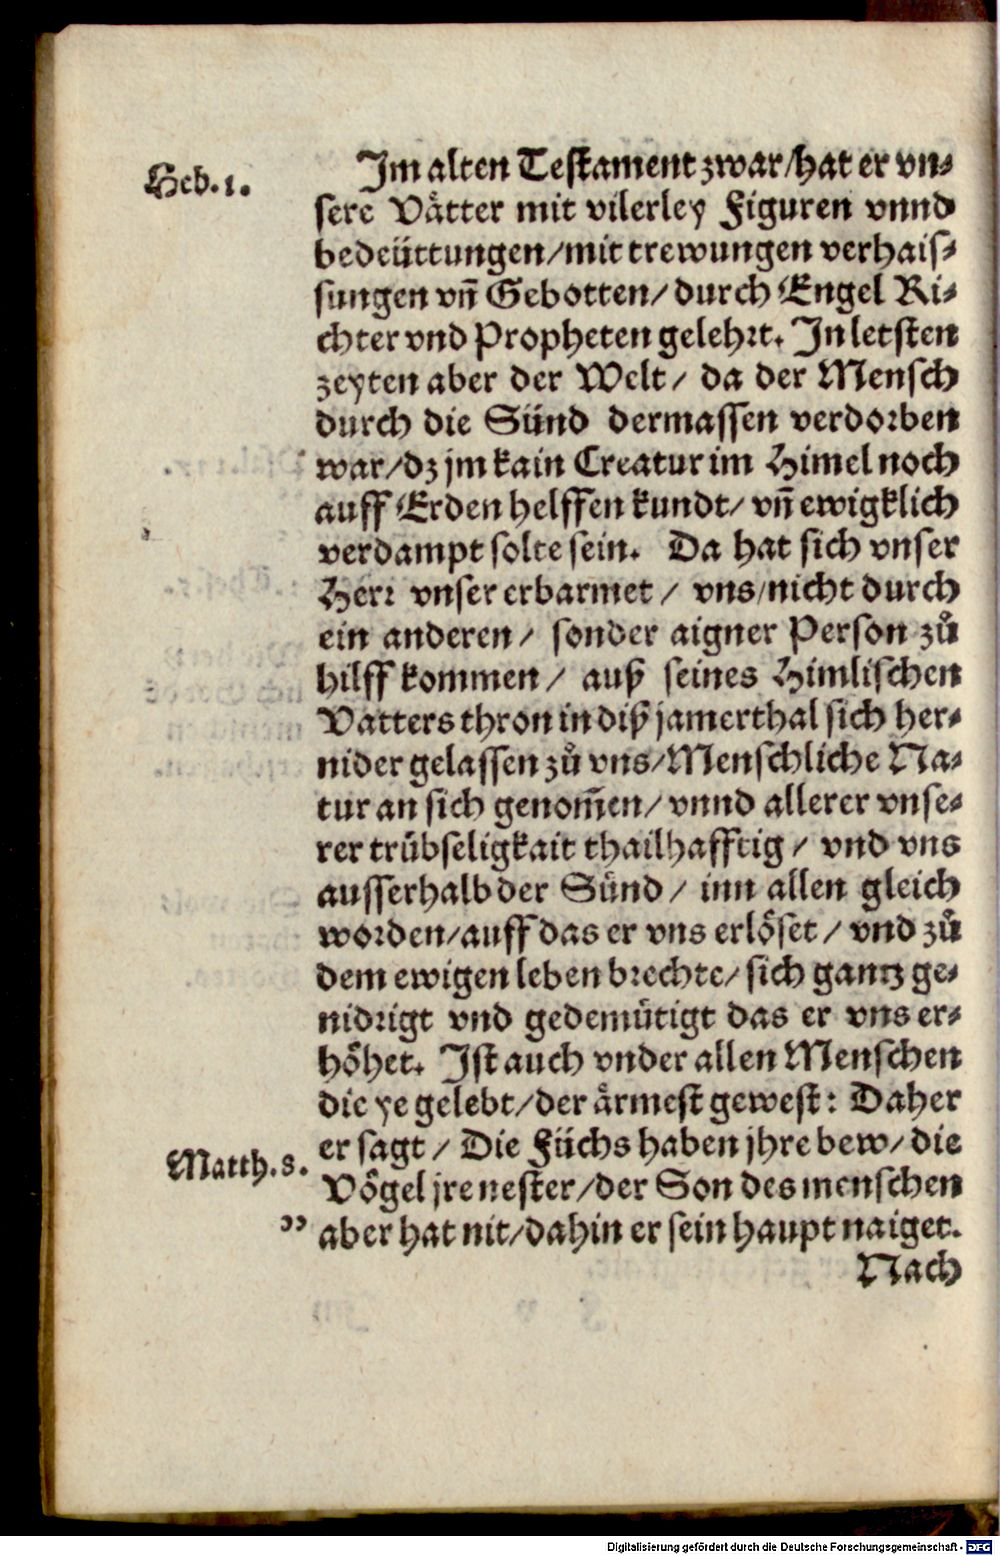 Heb. 1.
Im alten Testament zwar/hat er vn⸗
sere Vaͤtter mit vilerley Figuren vnnd
bedeüttungen/mit trewungen verhais⸗
sungen vñ Gebotten/durch Engel Ri⸗
chter vnd Propheten gelehꝛt. In letsten
zeyten aber der Welt/ da der Mensch
durch die Sünd dermassen verdoꝛben
war/dz jm kain Creatur im Himel noch
auff Erden helffen kundt/ vñ ewigklich
verdampt solte sein. Da hat sich vnser
Herꝛ vnser erbarmet / vns/nicht durch
ein anderen/ sonder aigner Person zuͦ
hilff kommen/ auß seines Himlischen
Vatters thron in diß jamerthal sich her⸗
nider gelassen zuͦ vns/Menschliche Na⸗
tur an sich genom̃en/ vnnd allerer vnse⸗
rer truͤbseligkait thailhafftig/ vnd vns
ausserhalb der Sünd/ inn allen gleich
woꝛden/auff das er vns erloͤset/ vnd zuͦ
dem ewigen leben bꝛechte/ sich gantz ge⸗
nidꝛigt vnd gedemuͤtigt das er vns er⸗
hoͤhet. Ist auch vnder allen Menschen
die ye gelebt/der aͤrmest gewest: Daher
er sagt/ Die Füchs haben jhre bew/ die
Matth. 8.
Voͤgel jre nester/der Son des menschen
” aber hat nit/dahin er sein haupt naiget.
Nach
Digitalisierung gefördert durch die Deutsche Forschungsgemeinschaft - DFG